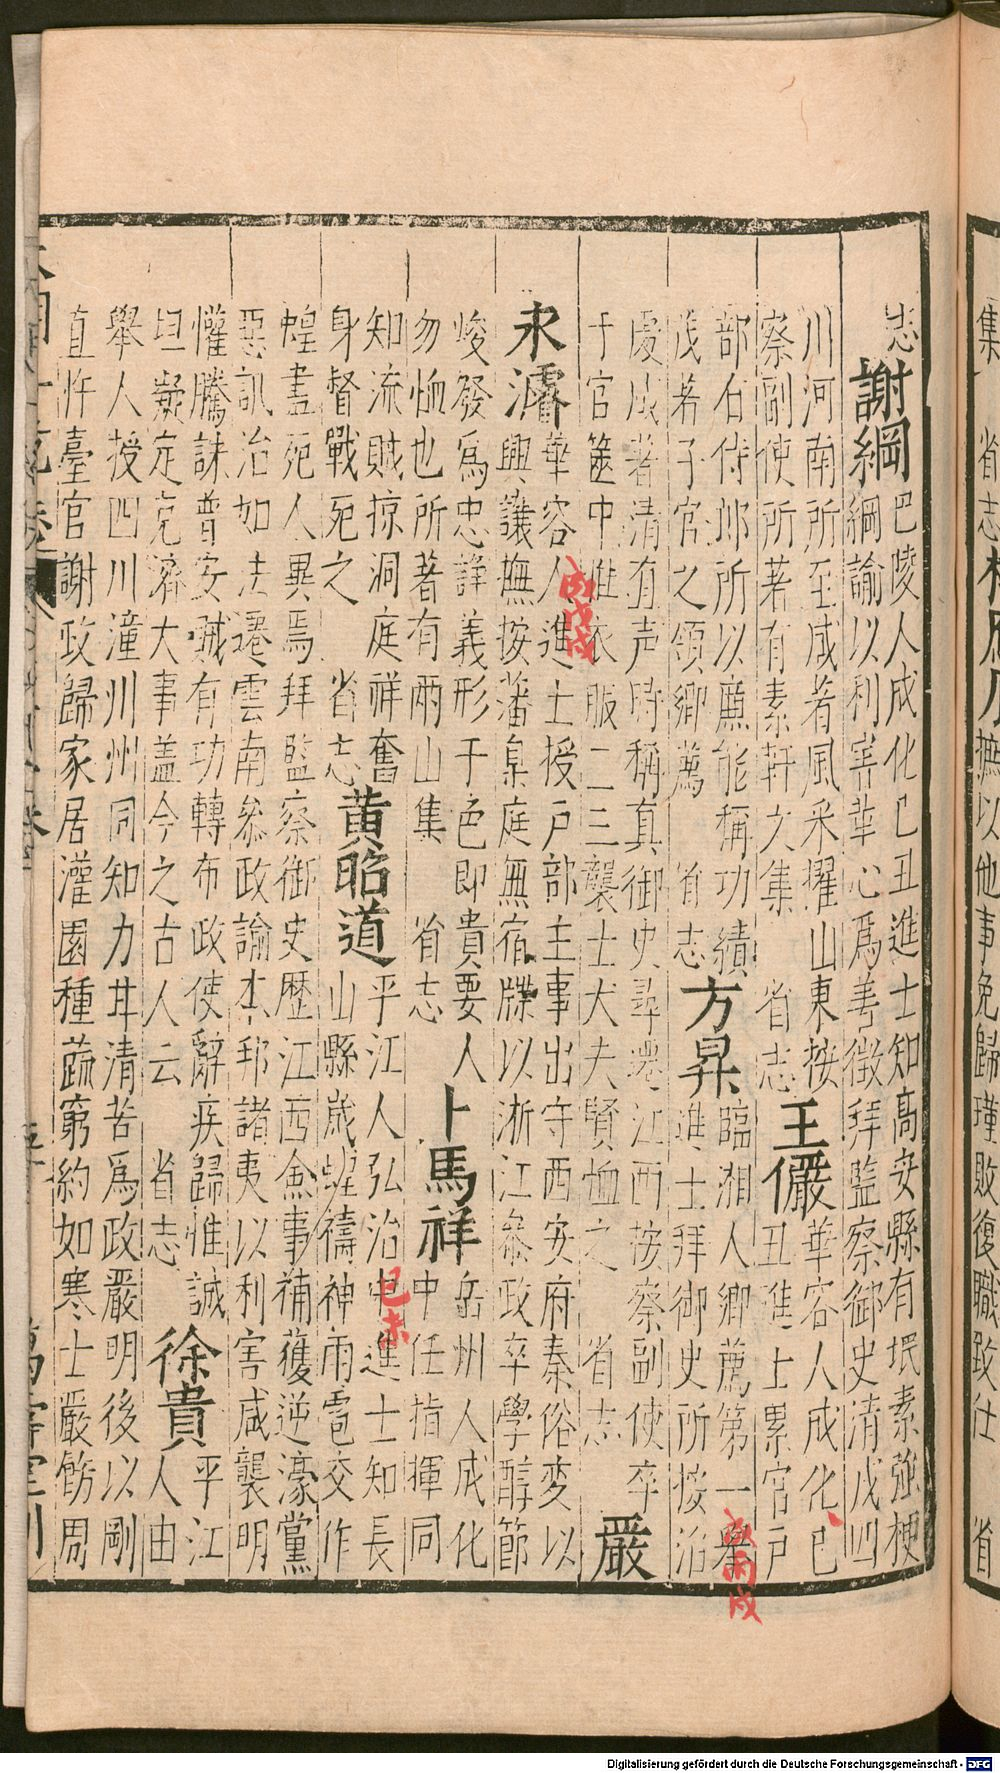 志謝綱巴陵人成化己丑進士知高安縣有垊素強梗
綱諭以利害革心爲善徵拜監察御史清戎四
川河南所至咸著風采擢山東按
察副使所著有素軒文集 省志王儼華容人成化己
丑進士累官戶
部右侍郎所以廉能稱功績 臨湘人鄉薦第一舉
茂若子官之領鄉薦 省志方昇進士拜御史所按治
慶成著清有声時稱真御史尋遷江西按察副使卒
于官篋中惟衣服二三襲士大夫賢恤之 省志 嚴
永濬華容人進士授戶部主事出守西安府秦俗変以
興讓撫按藩臬庭無宿牒以浙江叅政卒學醇節
峻發爲忠諽義形于色即貴要人 岳州人成化
勿恤也所著有兩山集 省志卜馬祥中任指揮同
知流賊掠洞庭祥奮 平江人弘治中進士知長
身督戰死之 省志黃昭道山縣歲蝗禱神雨雹交作
蝗盡死人異焉拜監察御史歷江西僉事補獲逆濠黨
惡訊治如法遷雲南叅政諭木邦諸夷以利害咸襲明
懽騰誅普安賊有功轉布政使辭疾歸惟誠 平江
坦凝定克濟大事盖今之古人云 省志徐貴人由
舉人授四川潼川州同知力甘清苦爲政嚴明後以剛
直忤臺官謝政歸家居灌園種蔬窮約如寒士嚴飭周
丙戌
成丙戌
己未
集 省志
撫以他事免歸瑾敗復職致仕 省
Digitalisierung gefördert durch die Deutsche Forschungsgemeinschaft - DFG